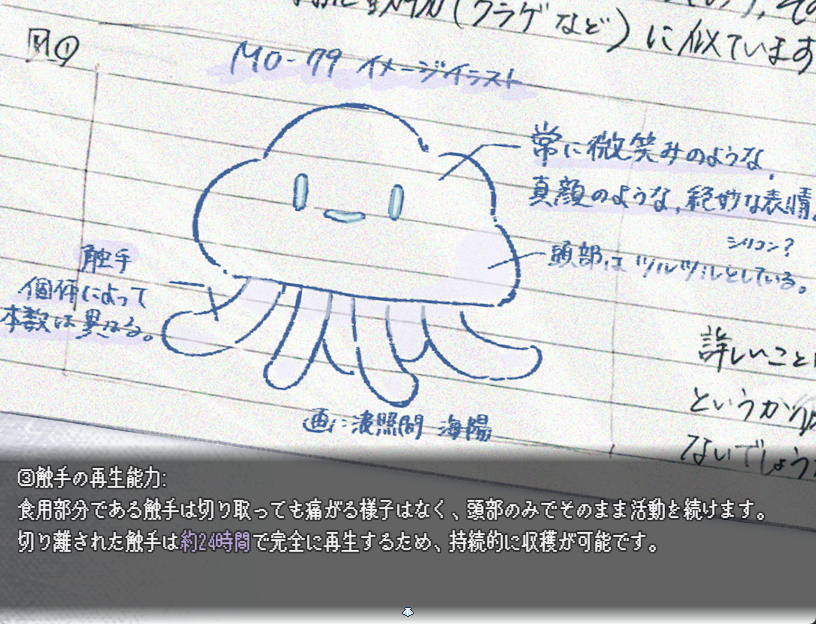 (クラゲなど)に似ています
図①
MO-79 イメージイラスト
常に微笑みのような、
真顔のような、絶妙な表情。
シリコン?
頭部は ツルツルとしている。
触手
個体によって
本数は異なる。
詳しいこと
というか
ないでしょう
画:波照間 海陽
③触手の再生能力:
食用部分である触手は切り取っても痛がる様子はなく、頭部のみでそのまま活動を続けます。
切り離された触手は約24時間で完全に再生するため、持続的に収穫が可能です。